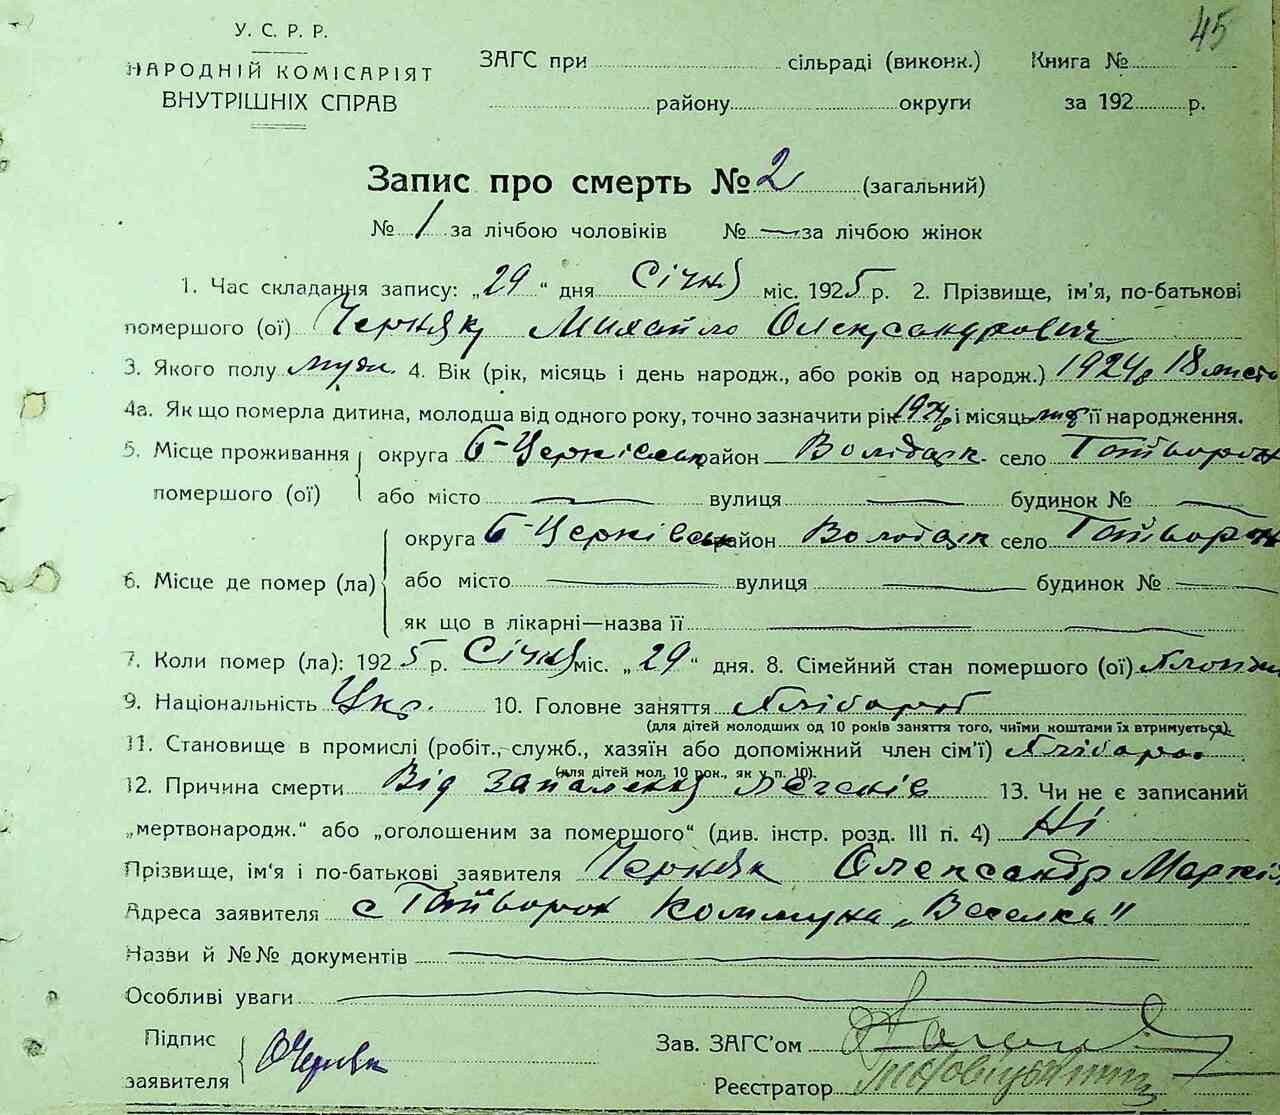 45
У. С. Р. Р.
НАРОДНІЙ КОМІСАРІЯТ
ВНУТРІШНІХ СПРАВ
ЗАГС при сільраді (виконк.) Книга №
району округи за 192 р.
Запис про смерть № 2 (загальний)
№ 1 за лічбою чоловіків № — за лічбою жінок
1. Час складання запису: „29“ дня Січня міс. 1925 р. 2. Прізвище, ім'я, по-батькові
помершого (ої) Черняк Михайло Олександрович
3. Якого полу муж. 4. Вік (рік, місяць і день народж., або років од народж.) 1924 18 листо
4а. Як що померла дитина, молодша від одного року, точно зазначити рік 1924 і місяць її народження.
5. Місце проживання округа Б-Церківськ район Володарк. село Гайворон
помершого (ої) або місто — вулиця — будинок № —
округа Б-Церківськ район Володарк село Гайворон
6. Місце де помер (ла) або місто — вулиця — будинок № —
як що в лікарні—назва її —
7. Коли помер (ла): 1925 р. Січня міс. „29“ дня. 8. Сімейний стан помершого (ої)
9. Національність Укр. 10. Головне заняття Хлібороб
(для дітей молодших од 10 років заняття того, чиїми коштами їх втримується).
11. Становище в промислі (робіт., служб., хазяїн або допоміжний член сім'ї) Хлібороб
(для дітей мол. 10 рок., як у п. 10).
12. Причина смерти Від запалення легенів 13. Чи не є записаний
„мертвонародж.“ або „оголошеним за помершого“ (див. інстр. розд. III п. 4) Ні
Прізвище, ім'я і по-батькові заявителя Черняк Олександр Маркі
Адреса заявителя с Гайворон Коммуна „Веселка"
Назви й №№ документів —
Особливі уваги —
Підпис
заявителя О Черняк
Зав. ЗАГС'ом
Реєстратор